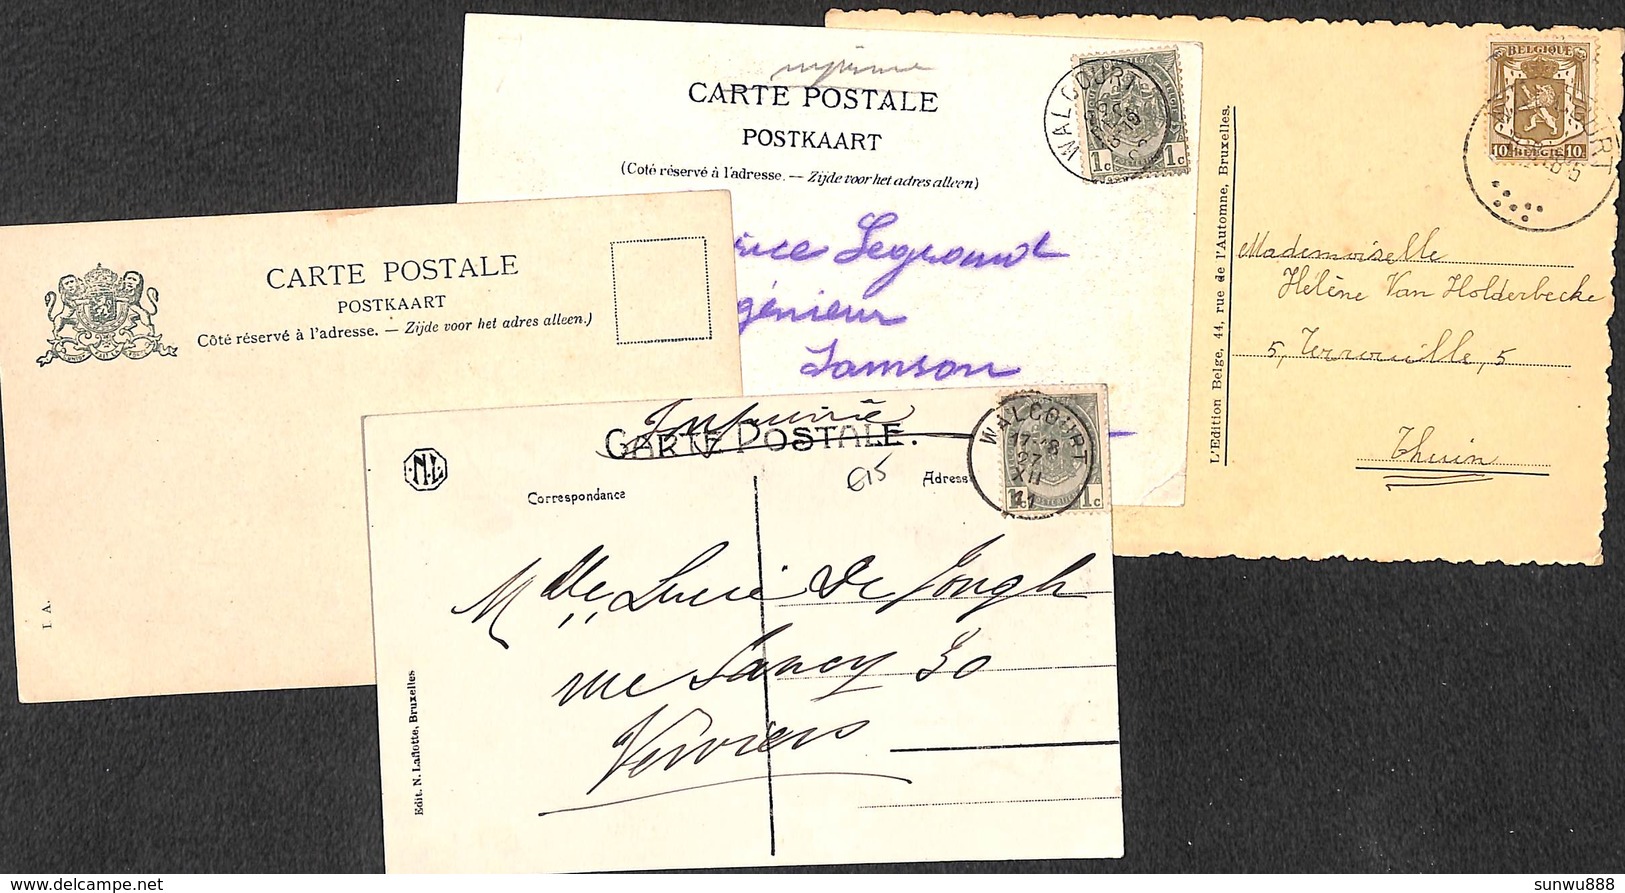 imprimé
CARTE POSTALE
POSTKAART
(Coté réservé à l'adresse. — Zijde voor het adres alleen)
WALCOURT
1c 1c
Legrand
génieur
Samson
BELGIQUE
10 BELGIE 10
L'Edition Belge, 44, rue de l'Automne, Bruxelles.
Mademoiselle
Hélène Van Holderbecke
5, 5
Thuin
CARTE POSTALE
POSTKAART
Côté réservé à l'adresse. — Zijde voor het adres alleen.)
I. A.
Imprimé
CARTE POSTALE.
N.L
615
Correspondance
Adress
WALCOURT
17-18
27
XII
11
1c 1c
Mlle Lucie De Jongh
rue Sancy 30
Verviers
Edit. N. Laflotte, Bruxelles
sunwu888